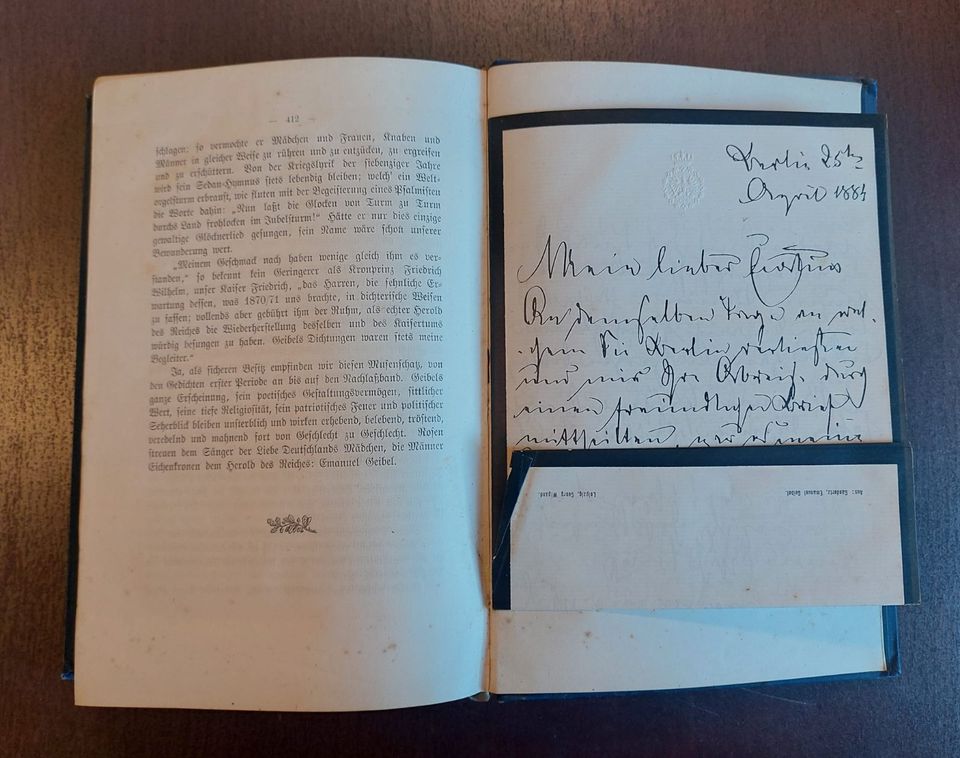 — 412 —
schlagen: so vermochte er Mädchen und Frauen, Knaben und
Männer in gleicher Weise zu rühren und zu entzücken, zu ergreifen
und zu erschüttern. Von der Kriegslyrik der siebenziger Jahre
wird sein Sedan-Hymnus stets lebendig bleiben; welch' ein Welt-
orgelsturm erbraust, wie fluten mit der Begeisterung eines Psalmisten
die Worte dahin: „Nun laßt die Glocken von Turm zu Turm
durchs Land frohlocken im Jubelsturm!“ Hätte er nur dies einzige
gewaltige Glöcknerlied gesungen, sein Name wäre schon unserer
Bewunderung wert.
„Meinem Geschmack nach haben wenige gleich ihm es ver-
standen,“ so bekennt kein Geringerer als Kronprinz Friedrich
Wilhelm, unser Kaiser Friedrich, „das Harren, die sehnliche Er-
wartung dessen, was 1870/71 uns brachte, in dichterische Weisen
zu fassen; vollends aber gebührt ihm der Ruhm, als echter Herold
des Reiches die Wiederherstellung desselben und des Kaisertums
würdig besungen zu haben. Geibels Dichtungen waren stets meine
Begleiter.“
Ja, als sicheren Besitz empfinden wir diesen Musenschatz, von
den Gedichten erster Periode an bis auf den Nachlaßband. Geibels
ganze Erscheinung, sein poetisches Gestaltungsvermögen, sittlicher
Wert, seine tiefe Religiosität, sein patriotisches Feuer und politischer
Seherblick bleiben unsterblich und wirken erhebend, belebend, tröstend,
veredelnd und mahnend fort von Geschlecht zu Geschlecht. Rosen
streuen dem Sänger der Liebe Deutschlands Mädchen, die Männer
Eichenkronen dem Herold des Reiches: Emanuel Geibel.
Berlin 25ten
April 1884
Mein lieber Curtius
An demselben Tage an wel-
chem Sie Berlin verließen
und mir Ihre Abreise durch
einen freundlichen Brief
mittheilten, war es meine
Aus: Gaedertz, Emanuel Geibel.
Leipzig, Georg Wigand.